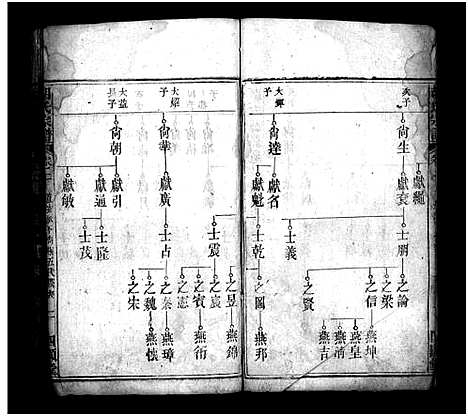 次子
尚生
獻龍
獻袞
士朋
之論
之梁
之信
之賢
燕坤
燕皇
燕清
燕吉
士義
大輝子
尚達
獻名
獻魁
士乾
之圖
燕邦
大輝子
尚華
獻廣
士震
士占
之昱
之宸
之賓
之憲
之秦
之魏
之朱
燕錦
燕衔
燕璋
燕懷
大益長子
尚朝
獻引
獻通
獻敏
士隆
士茂